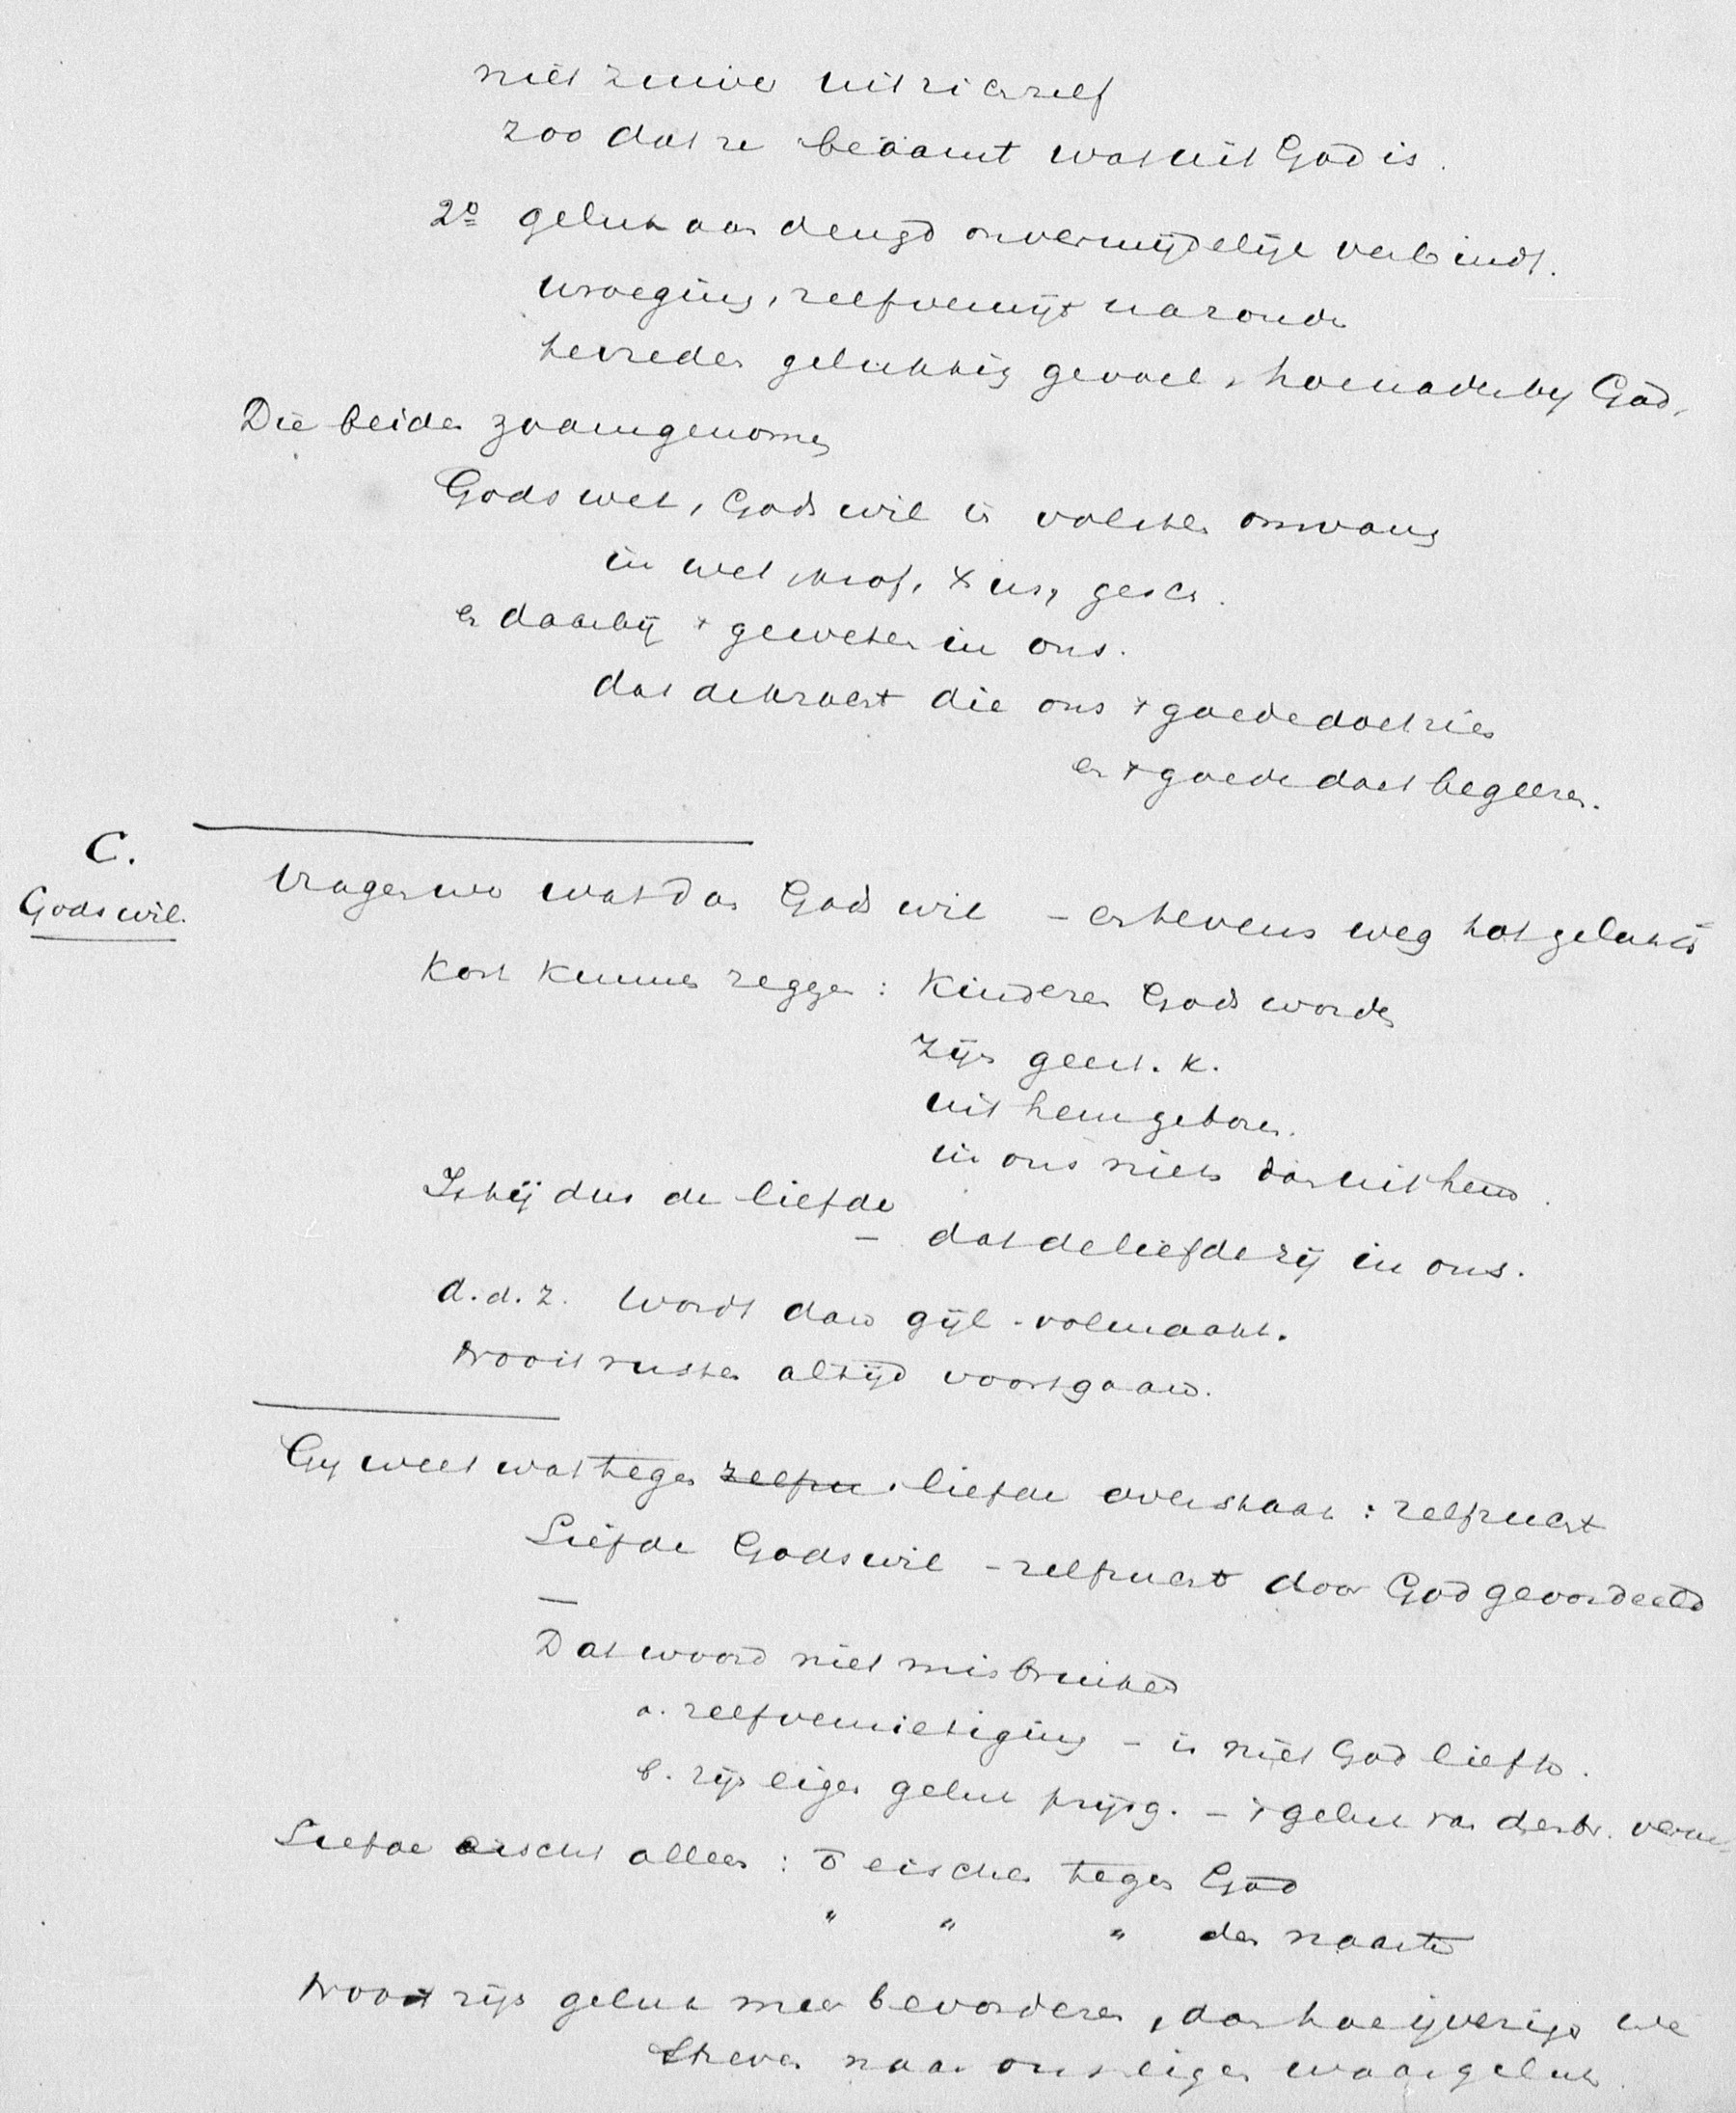 niet zuiver uit zichzelf
zoo dat ze beäamt wat uit God is.
2º geluk aan deugd onvermijdelijk verbindt.
wroeging, zelfverwijt na zonde
tevreden gelukkig gevoel, hoe nader by God,
Die beiden zaamgenomen
Gods wet, Gods wil in volsten omvang
in wet, prof, Xus, gesch.
en daarbij + geweten in ons.
dat de kracht die ons + goede doet zien
en + goede doet begeeren.
C.
Gods wil.
Vragen we wat dan Gods wil - en tevens weg tot geluk is
Kort kunnen zeggen: Kinderen Gods worden
Zijn geest. k.
uit hem geboren.
in ons niets dan uit hem.
Is hij dus de liefde
- dat de liefde zij in ons.
d.d.z. Wordt dan gijl. volmaakt.
Nooit rusten altijd voortgaan.
Gy weet wat tegen zelfzu liefde overstaat: zelfzucht
Liefde Gods wil - zelfzucht door God geoordeeld
Dat woord niet misbruiken
a. zelfvernietiging - is niet God liefh.
b. zijn eigen geluk prijsg. - + geluk van
Liefde eischt alleen: o eischen tegen God
" " " den naaste
Nooit zijn geluk meer bevorderen, dan hoe ijveriger we
Streven naar ons eigen waar geluk.